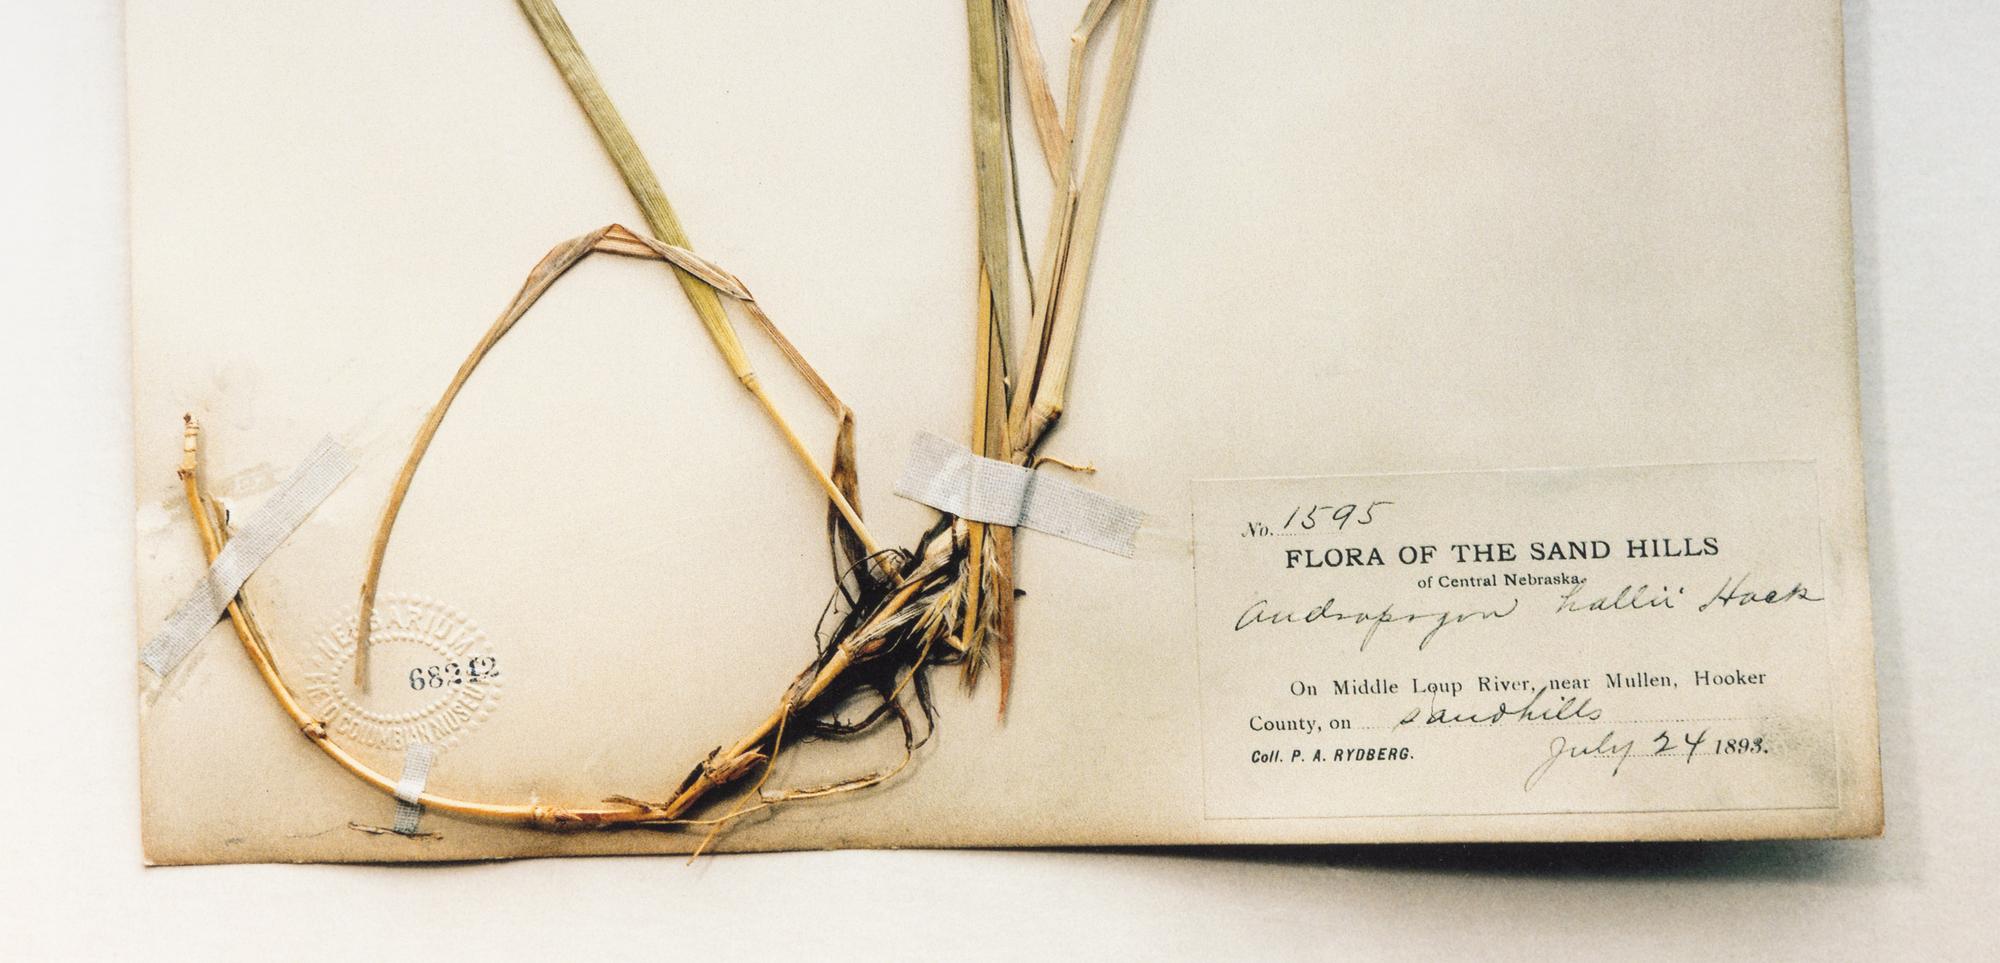 HERBARIUM
68242
FIELD COLUMBIAN MUSEUM
No. 1595
FLORA OF THE SAND HILLS
of Central Nebraska.
Andropogon hallii Hack
On Middle Loup River, near Mullen, Hooker
County, on sandhills
Coll. P. A. RYDBERG. July 24 1893.